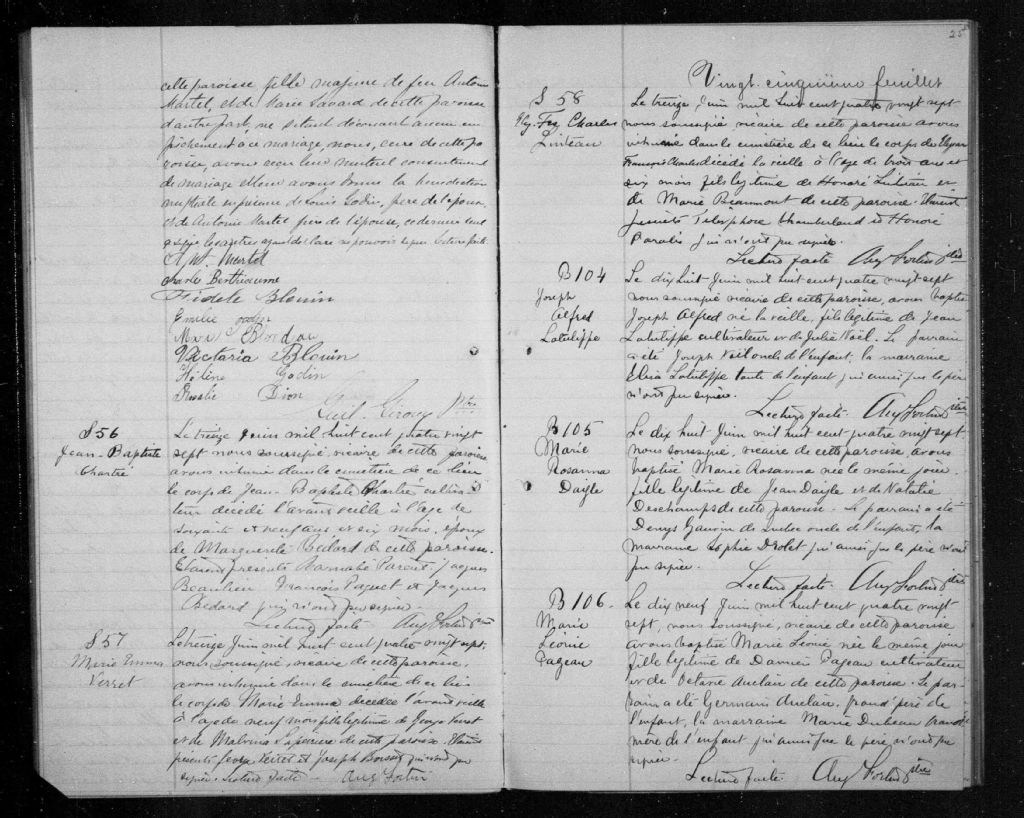 cette paroisse fille majeure de feu Antoine
Martel, et de Marie Savard de cette paroisse
d'autre part, ne s'étant découvert aucun em
pêchement à ce mariage, nous, curé de cette pa
roisse, avons reçu leur mutuel consentement
de mariage et leur avons donné la bénédiction
nuptiale en présence de Louis Godin, père de l'époux,
et de Antoine Martel père de l'épouse,
lecture faite
Martel
Charles Berthiaume
Fidele Blouin
Emilie godin
Victoria Blouin
Hélène Godin
Amélie Dion
Giroux Ptre
S 56
Jean-Baptiste
Chartré
Le treize Juin mil huit cent quatre vingt
sept nous soussigné, vicaire de cette paroisse
avons inhumé dans le cimetière de ce lieu
le corps de Jean-Baptiste Chartré cultiva
teur décédé l'avant veille à l'age de
soixante et neuf ans et six mois, époux
de Marguerite Bedard de cette paroisse.
Etaient présents Barnabé Parent, Jacques
Beaulieu François Paquet et Jacques
Bedard qui n'ont pu signer.
Lecture faite. Aug Fortin ptre
S 57
Marie Emma
Verret
Le treize Juin mil huit cent quatre vingt sept,
nous soussigné, vicaire de cette paroisse,
avons inhumé dans le cimetière de ce lieu
le corps de Marie Emma décédée l'avant veille
à l'age de neuf mois fille legitime de George Verret
et de Malvina de cette paroisse.
présents George Verret et Joseph qui n'ont pu
signer. Lecture faite Aug Fortin
25
Vingt cinquième feuillet
S 58
Elz. Frs Charles
Linteau
Le treize, Juin mil huit cent quatre vingt sept
nous soussigné, vicaire de cette paroisse avons
inhumé dans le cimetière de ce lieu le corps de Elzear
François Charles décédé la veille à l'age de trois ans et
six mois fils legitime de Honoré Linteau et
de Marie Beaumont de cette paroisse. Etaient
présents Telesphore Chamberland et Honoré
Paradis qui n'ont pu signer.
Lecture faite Aug Fortin ptre
B 104
Joseph
Alfred
Latulippe
Le dix huit Juin mil huit cent quatre vingt sept
nous soussigné vicaire de cette paroisse, avons baptisé
Joseph Alfred né la veille, fils legitime de Jean
Latulippe cultivateur et de Julie Noël. Le parrain
a été Joseph Noël oncle de l'enfant, la marraine
Elisa Latulippe tante de l'enfant qui ainsi que le père
n'ont pu signer.
Lecture faite. Aug Fortin ptre
B 105
Marie
Rosanna
Daigle
Le dix huit Juin mil huit cent quatre vingt sept
nous soussigné, vicaire de cette paroisse, avons
baptisé Marie Rosanna née le même jour
fille legitime de Jean Daigle et de Natalie
Deschamps de cette paroisse. Le parrain a été
Denys Gauvin de Québec oncle de l'enfant, la
marraine Sophie Drolet qui ainsi que le père n'ont
pu signer.
Lecture faite. Aug Fortin ptre
B 106
Marie
Léonie
Pageau
Le dix neuf Juin mil huit cent quatre vingt
sept, nous soussigné, vicaire de cette paroisse
avons baptisé Marie Léonie née le même jour
fille legitime de Damien Pageau cultivateur
et de Octavie Auclair de cette paroisse. Le par-
rain a été Germain Auclair, grand père de
l'enfant, la marraine Marie Dubeau grand
mère de l'enfant qui ainsi que le père n'ont pu
signer.
Lecture faite. Aug Fortin ptre